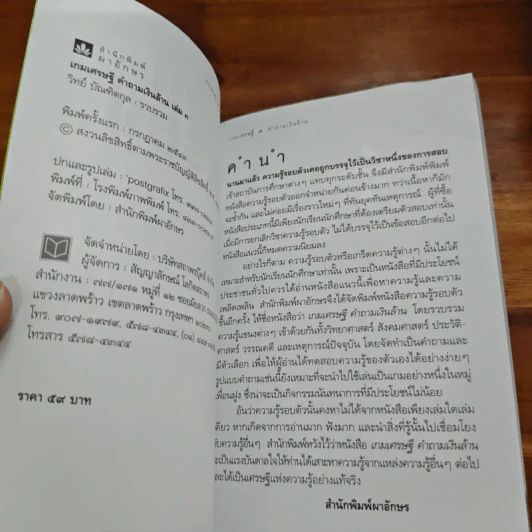 สำนักพิมพ์
ผาอักษร
เกมเศรษฐี คำถามเงินล้าน เล่ม ๓
วิทย์ บัณฑิตกุล : รวบรวม
พิมพ์ครั้งแรก : กรกฎาคม ๒๕๔๓
© สงวนลิขสิทธิ์ตามพระราชบัญญัติลิขสิทธิ์
ปกและรูปเล่ม : 'postgrafix โทร.
พิมพ์ที่ : โรงพิมพ์ภาพพิมพ์ โทร.
จัดพิมพ์โดย : สำนักพิมพ์ผาอักษร
จัดจำหน่ายโดย : บริษัทสถาพรบุ๊คส์
ผู้จัดการ : สัญญาลักษณ์
สำนักงาน : ๗๗/๑๗๑ หมู่ที่ ๑๒ ซอย
แขวงลาดพร้าว เขตลาดพร้าว กรุงเทพฯ
โทร. ๙๐๗-๑๙๗๙, ๕๗๘-๔๓๔๔, (๐๑)
โทรสาร ๕๗๘-๔๓๔๔
ราคา ๕๙ บาท
เกมเศรษฐี ๓ คำถามเงินล้าน
คำนำ
นานมาแล้ว ความรู้รอบตัวเคยถูกบรรจุไว้เป็นวิชาหนึ่งของการสอบ
เข้าสถาบันการศึกษาต่างๆ แทบทุกระดับชั้น จึงมีสำนักพิมพ์พิมพ์
หนังสือความรู้รอบตัวออกจำหน่ายกันค่อนข้างมาก ทว่าเนื้อหาก็มัก
และซ้ำกัน และไม่ค่อยมีเรื่องราวใหม่ๆ ที่ทันยุคทันเหตุการณ์ ผู้ที่ซื้อ
หนังสือประเภทนี้มีเพียงนักเรียนนักศึกษาที่ต้องเตรียมตัวสอบเท่านั้น
เมื่อมีการยกเลิกวิชาความรู้รอบตัว ไม่ได้บรรจุไว้เป็นข้อสอบอีกต่อไป
หนังสือแนวนี้ก็หมดความนิยมลง
อย่างไรก็ตาม ความรู้รอบตัวหรือเกร็ดความรู้ต่างๆ นั้นไม่ได้
เหมาะสำหรับนักเรียนนักศึกษาเท่านั้น เพราะเป็นหนังสือที่มีประโยชน์
ประชาชนทั่วไปควรได้อ่านหนังสือแนวนี้เพื่อหาความรู้และความ
เพลิดเพลิน สำนักพิมพ์ผาอักษรจึงได้จัดพิมพ์หนังสือความรู้รอบตัว
ขึ้นอีกครั้ง ให้ชื่อหนังสือว่า เกมเศรษฐี คำถามเงินล้าน โดยรวบรวม
ความรู้แขนงต่างๆ เข้าด้วยกันทั้งวิทยาศาสตร์ สังคมศาสตร์ ประวัติ-
ศาสตร์ วรรณคดี และเหตุการณ์ปัจจุบัน โดยจัดทำเป็นคำถามและ
มีตัวเลือก เพื่อให้ผู้อ่านได้ทดสอบความรู้ของตัวเองได้อย่างง่ายๆ
รูปแบบคำถามเช่นนี้ยังเหมาะที่จะนำไปใช้เล่นเป็นเกมอย่างหนึ่งในหมู่
เพื่อนฝูง ซึ่งน่าจะเป็นกิจกรรมนันทนาการที่มีประโยชน์ไม่น้อย
อันว่าความรู้รอบตัวนั้นคงหาไม่ได้จากหนังสือเพียงเล่มใดเล่ม
เดียว หากเกิดจากการอ่านมาก ฟังมาก และนำสิ่งที่รู้นั้นไปเชื่อมโยง
กับความรู้อื่นๆ สำนักพิมพ์หวังไว้ว่าหนังสือ เกมเศรษฐี คำถามเงินล้าน
จะเป็นแรงบันดาลใจให้ท่านได้เสาะหาความรู้จากแหล่งความรู้อื่นๆ ต่อไป
และได้เป็นเศรษฐีแห่งความรู้อย่างแท้จริง
สำนักพิมพ์ผาอักษร